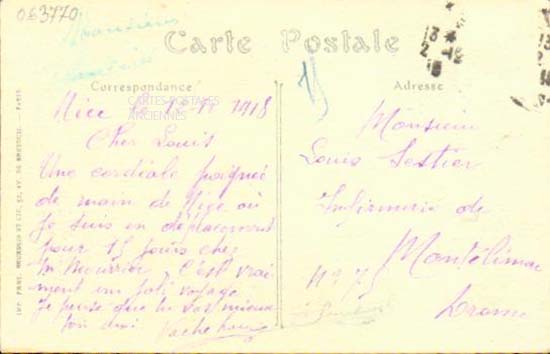 063770
Monsieur
Carte Postale
Correspondance
Adresse
CARTES POSTALES
ANCIENNES
Nice le 12-11 1918
Cher Louis
Une cordiale poignée
de main de Nice où
je suis en déplacement
pour 15 jours chez
C'est vrai-
ment un joli voyage
Je pense que tu vas mieux
Monsieur
Louis Sestier
Infirmerie de
Montélimar
No 75
Drome